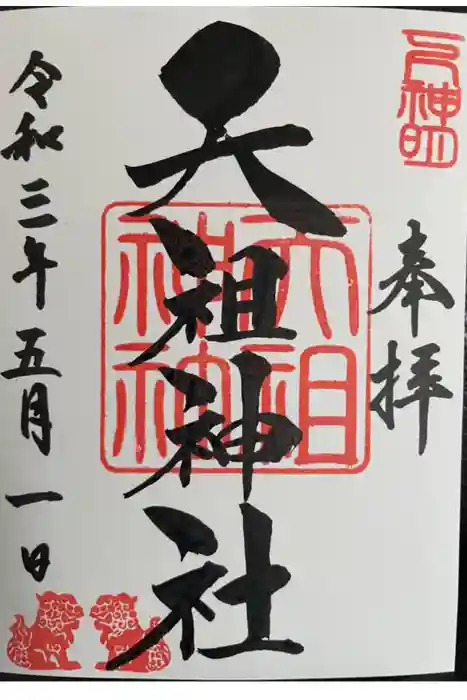 下神明
奉拝
天祖神社
天祖
神社
令和三年五月一日